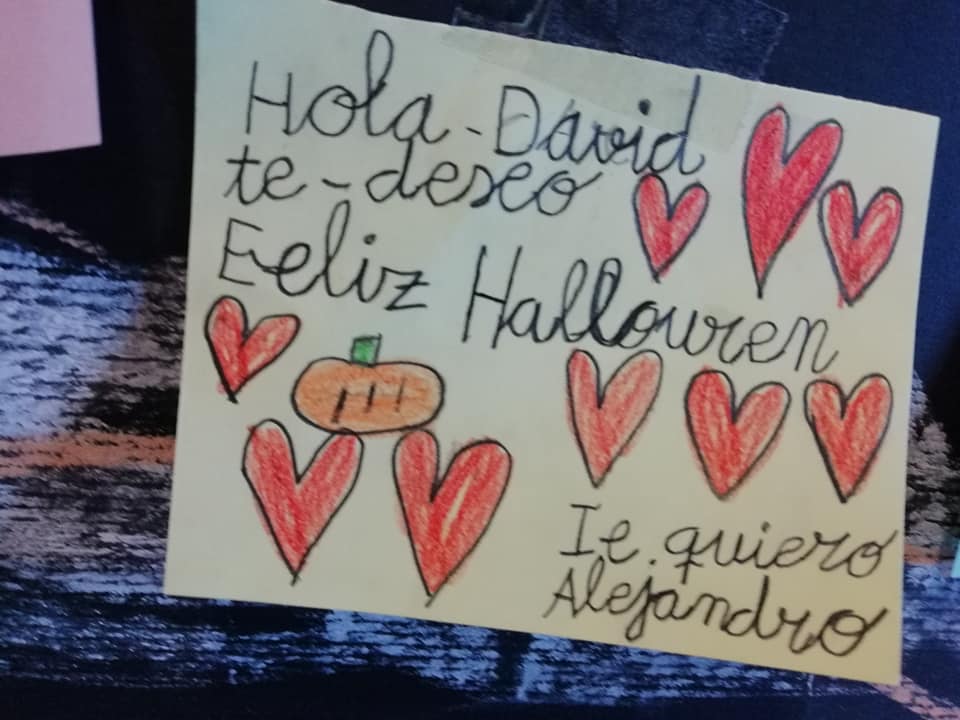 Hola-David
te-deseo
Feliz Hallowen
Te quiero
Alejandro